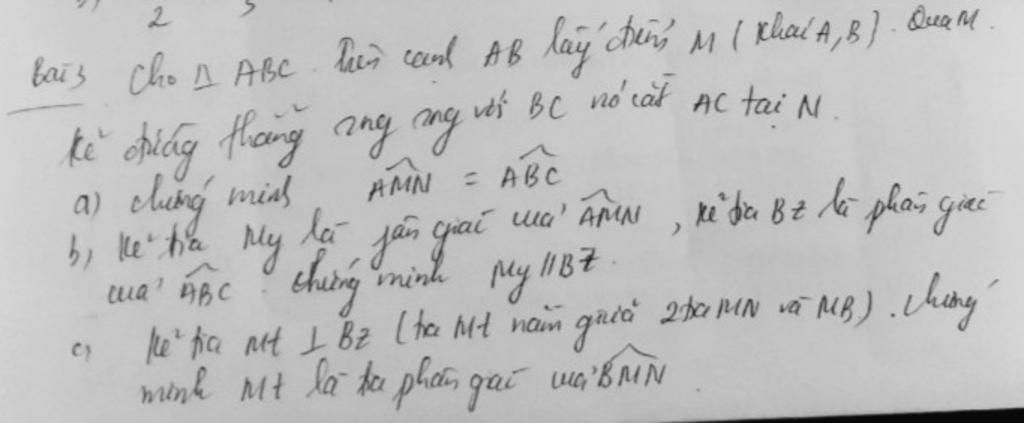 2
Bài 3 Cho △ ABC. Trên cạnh AB lấy điểm M (khác A, B). Qua M.
Kẻ đường thẳng song song với BC nó cắt AC tại N.
a) chứng minh AMN = ABC
b, Kẻ tia My là phân giác của AMN, kẻ tia Bz là phân giác
của ABC. chứng minh My // Bz.
c, Kẻ tia Mt ⊥ Bz (tia Mt nằm giữa 2 tia MN và MB). Chứng
minh Mt là tia phân giác của BMN